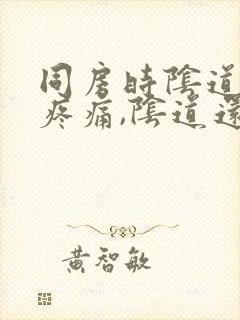 同房時陰道
疼痛,陰道還
黃智敏